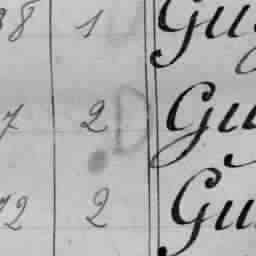 38 1 Gu
7 2 D Gu
72 2 Gu